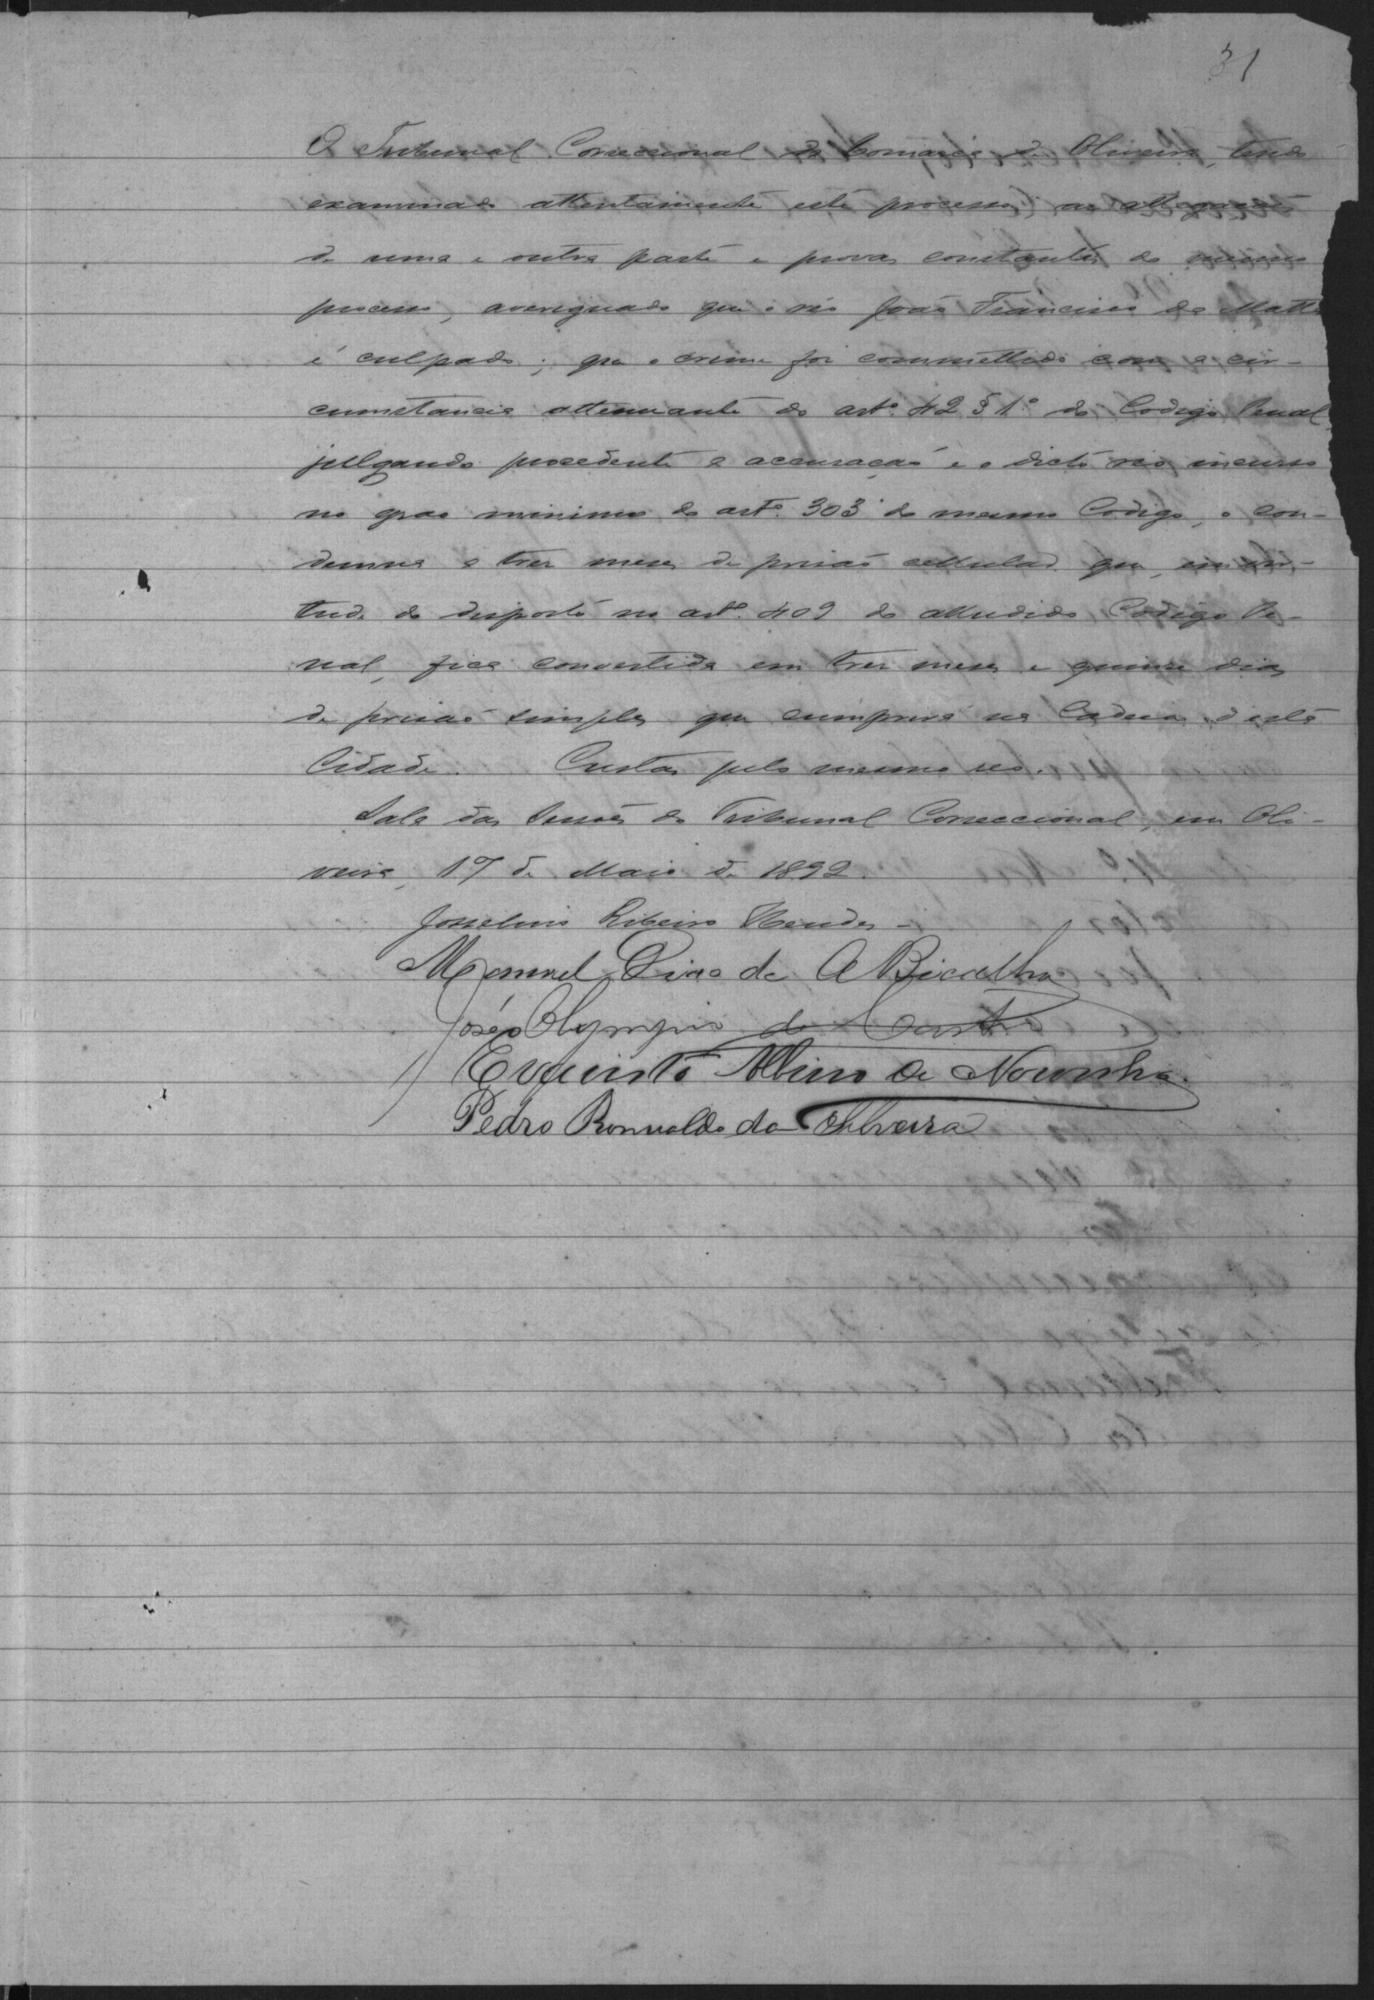 31
O Tribunal Correccional da Comarca de Oliveira, tendo
examinado attentamente este processo, as allegações
de uma e outra parte e provas constantes do mesmo
processo, averiguado que o réo João Francisco de Mattos
é culpado; que o crime foi commettido com a cir-
cumstancia attenuante do artº. 42 § 1º do Codigo Penal,
julgando procedente a accusação e o dicto réo incurso
no grao minimo do artº. 303 do mesmo Codigo, o con-
demna a tres mezes de prisão cellular que, em vir-
tude do disposto no artº. 409 do alludido Codigo Pe-
nal, fica convertida em tres mezes e quinze dias
de prisão simples que cumprirá na Cadeia desta
Cidade. Custas pelo mesmo réo.
Sala das Sessões do Tribunal Correccional, em Oli-
veira, 17 de Maio de 1892.
Josselino Ribeiro Mendes
Manuel Dias de A Bicalho
José Olympio de Castro
Evaristo Albino de Noronha
Pedro Romualdo da Silveira